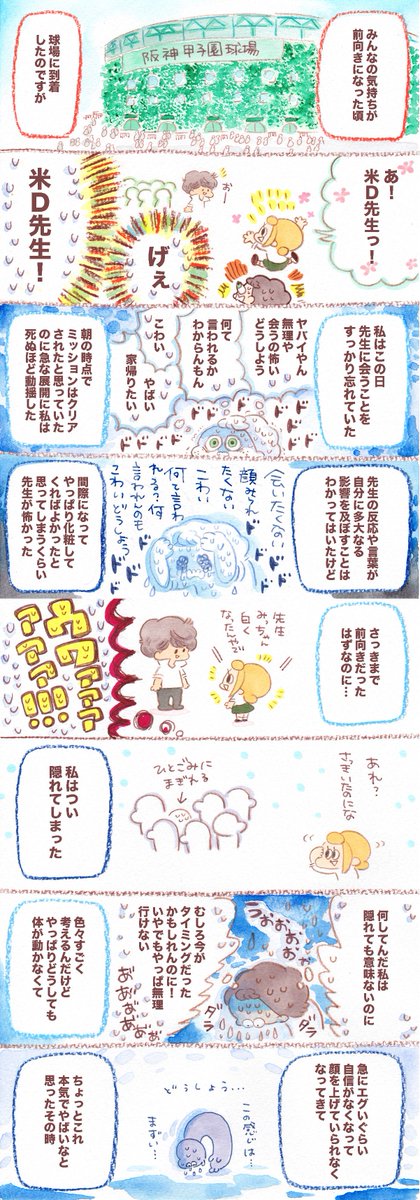 みんなの気持ちが
前向きになった頃
阪神甲子園球場
球場に到着
したのですが
あ!
米D先生っ!
おー
げぇ
米D先生!
私はこの日
先生に会うことを
すっかり忘れていた
ヤバイやん
無理や
会うの怖い
どうしよう
何て
言われるか
わからんもん
こわい
やばい
家帰りたい
ドドドド
ドドド
朝の時点で
ミッションはクリア
されたと思っていた
のに急な展開に私は
死ぬほど動揺した
先生の反応や言葉が
自分に多大なる
影響を及ぼすことは
わかってはいたけど
会いたくない
顔みられ
たくない
こわい
何て言わ
れる?何
言われんのも
こわいどうしよう
ドドドド
ドドド
間際になって
やっぱり化粧して
くればよかったと
思ってしまうくらい
先生が怖かった
さっきまで
前向きだった
はずなのに…
先生
みっちゃん
白く
なったんやで
ウワァァァ
アァァ!!!
あれ?
さっきいたのにな
ひとごみに
まぎれる
私はつい
隠れてしまった
何してんだ私は
隠れても意味ないのに
うおおおお
ダラ
ダラ
むしろ今が
タイミングだった
かもしれんのに!
いやでもやっぱ無理
行けない
あ゛あ゛あ゛あ゛ぁ
色々すごく
考えるんだけど
やっぱりどうしても
体が動かなくて
急にエグいぐらい
自信がなくなって
顔を上げていられなく
なってきて
どうしよう…
この感じは…
まずい…
ちょっとこれ
本気でやばいなと
思ったその時